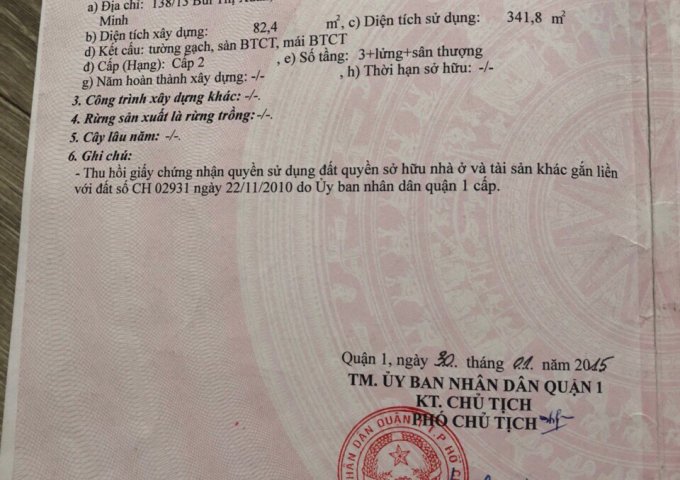 a) Địa chỉ: 138/13 Bùi Thị
Minh
b) Diện tích xây dựng: 82,4 m², c) Diện tích sử dụng: 341,8 m²
d) Kết cấu: tường gạch, sàn BTCT, mái BTCT
đ) Cấp (Hạng): Cấp 2 , e) Số tầng: 3+lửng+sân thượng
g) Năm hoàn thành xây dựng: -/- , h) Thời hạn sở hữu: -/-
3. Công trình xây dựng khác: -/-.
4. Rừng sản xuất là rừng trồng: -/-.
5. Cây lâu năm: -/-.
6. Ghi chú:
- Thu hồi giấy chứng nhận quyền sử dụng đất quyền sở hữu nhà ở và tài sản khác gắn liền
với đất số CH 02931 ngày 22/11/2010 do Ủy ban nhân dân quận 1 cấp.
Quận 1, ngày 30. tháng 01. năm 2015
TM. ỦY BAN NHÂN DÂN QUẬN 1
KT. CHỦ TỊCH
PHÓ CHỦ TỊCH
NHÂN DÂN QUẬN 1 T.P HỒ